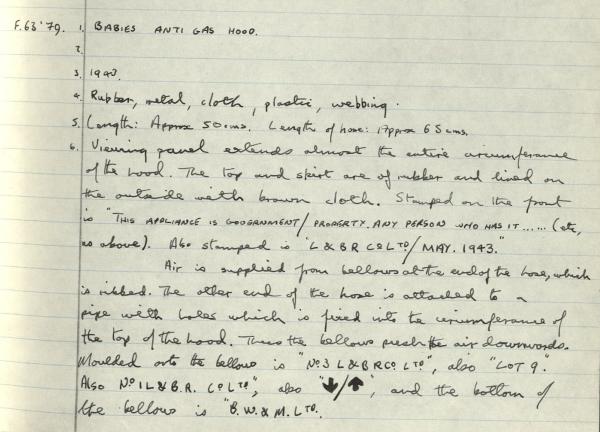 F.63'79. 1. BABIES ANTI GAS HOOD.
2.
3. 1943.
4. Rubber, metal, cloth, plastic, webbing.
5. Length: Approx 50cms. Length of hose: Approx 65cms.
6. Viewing panel extends almost the entire circumference
of the hood. The top and skirt are of rubber and lined on
the outside with brown cloth. Stamped on the front
is "THIS APPLIANCE IS GOVERNMENT/ PROPERTY. ANY PERSON WHO HAS IT...... (etc,
as above). Also stamped is "L & B R Co LTD/ MAY. 1943."
Air is supplied from bellows at the end of the hose, which
is ribbed. The other end of the hose is attached to a
pipe with holes which is fixed into the circumference of
the top of the hood. Thus the bellows push the air downwards.
Moulded onto the bellows is "No 3 L & B R Co LTD", also "LOT 9".
Also No 1 L & B. R. Co LTD", also "↓/↑", and the bottom of
the bellows is "B. W. & M. LTD.